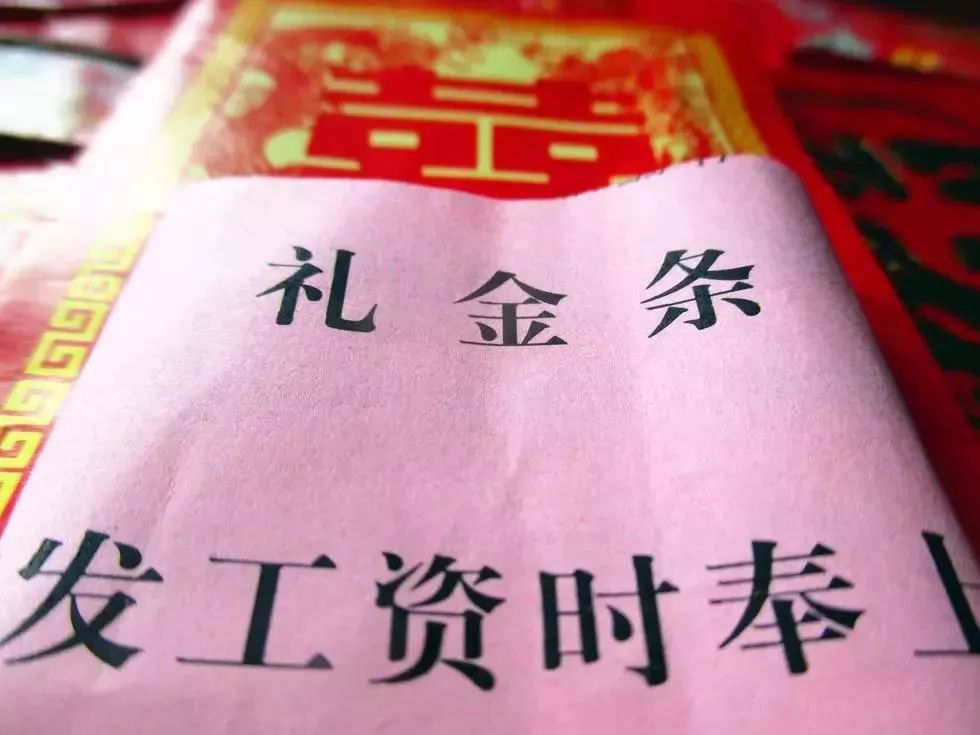 囍
礼金条
发工资时奉上